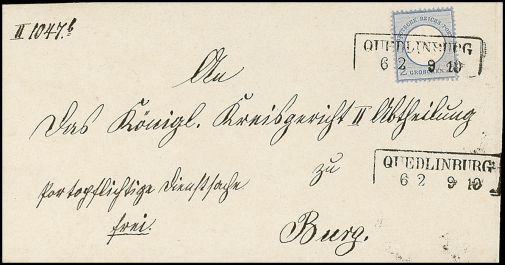 II 1047.b
DEUTSCHE REICHS-POST
2 GROSCHEN 2
QUEDLINBURG
6 2 9.10
An
Das Königl. Kreisgericht II Abtheilung
QUEDLINBURG
6 2 9 10
zu
Portopflichtige Dienstsache
frei.
Burg.